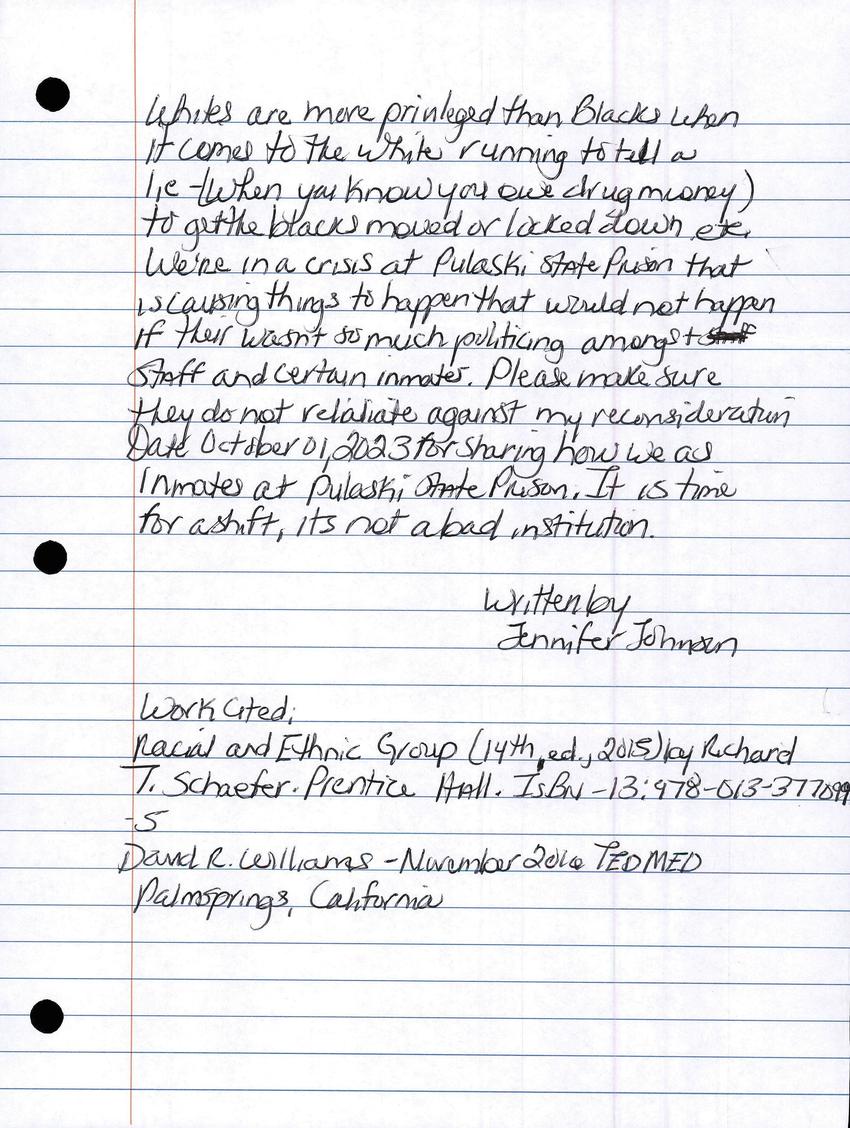 Whites are more privleged than Blacks when
it comes to the white running to tell a
lie -(When you know you owe drug muoney)
to get the blacks moved or locked down etc.
We're in a crisis at Pulaski State Prison that
is causing things to happen that would not happen
if their wasn't so much politicing amongst
Staff and certain inmates. Please make sure
they do not retaliate against my reconsideration
Date October 01, 2023 for sharing how we as
Inmates at Pulaski State Prison. It is time
for a shift, its not a bad institution.
Written by
Jennifer Johnson
Work Cited;
Racial and Ethnic Group (14th, ed., 2015) by Richard
T. Schaefer. Prentice Hall. IsBN -13:978-013-377099
-5
David R. Williams - November 2016 TEDMED
Palmsprings, California